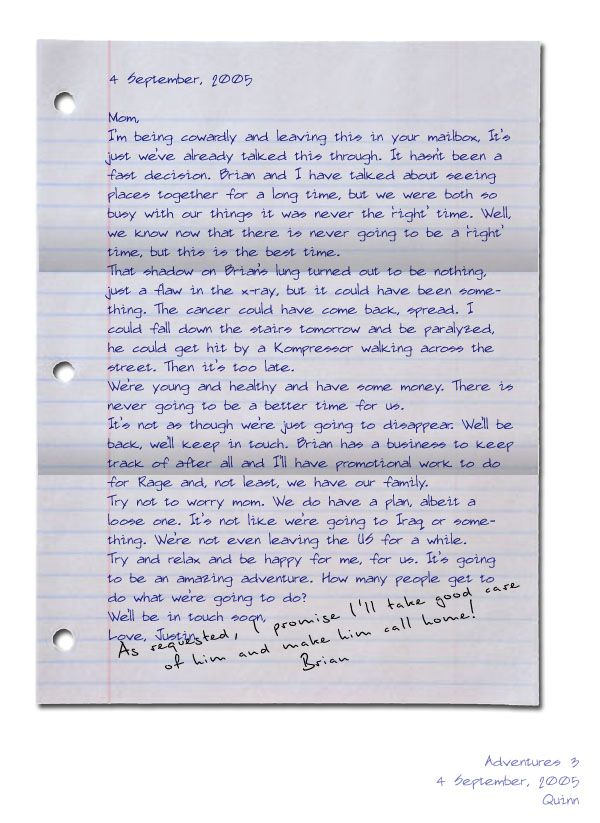 4 September, 2005
Mom,
I'm being cowardly and leaving this in your mailbox, It's
just we've already talked this through. It hasn't been a
fast decision. Brian and I have talked about seeing
places together for a long time, but we were both so
busy with our things it was never the 'right' time. Well,
we know now that there is never going to be a 'right'
time, but this is the best time.
That shadow on Brian's lung turned out to be nothing,
just a flaw in the x-ray, but it could have been some-
thing. The cancer could have come back, spread. I
could fall down the stairs tomorrow and be paralyzed,
he could get hit by a Kompressor walking across the
street. Then it's too late.
We're young and healthy and have some money. There is
never going to be a better time for us.
It's not as though we're just going to disappear. We'll be
back, we'll keep in touch. Brian has a business to keep
track of after all and I'll have promotional work to do
for Rage and, not least, we have our family.
Try not to worry mom. We do have a plan, albeit a
loose one. It's not like we're going to Iraq or some-
thing. We're not even leaving the US for a while.
Try and relax and be happy for me, for us. It's going
to be an amazing adventure. How many people get to
do what we're going to do?
We'll be in touch soon,
Love, Justin
As requested, I promise I'll take good care
of him and make him call home!
Brian
Adventures 3
4 September, 2005
Quinn